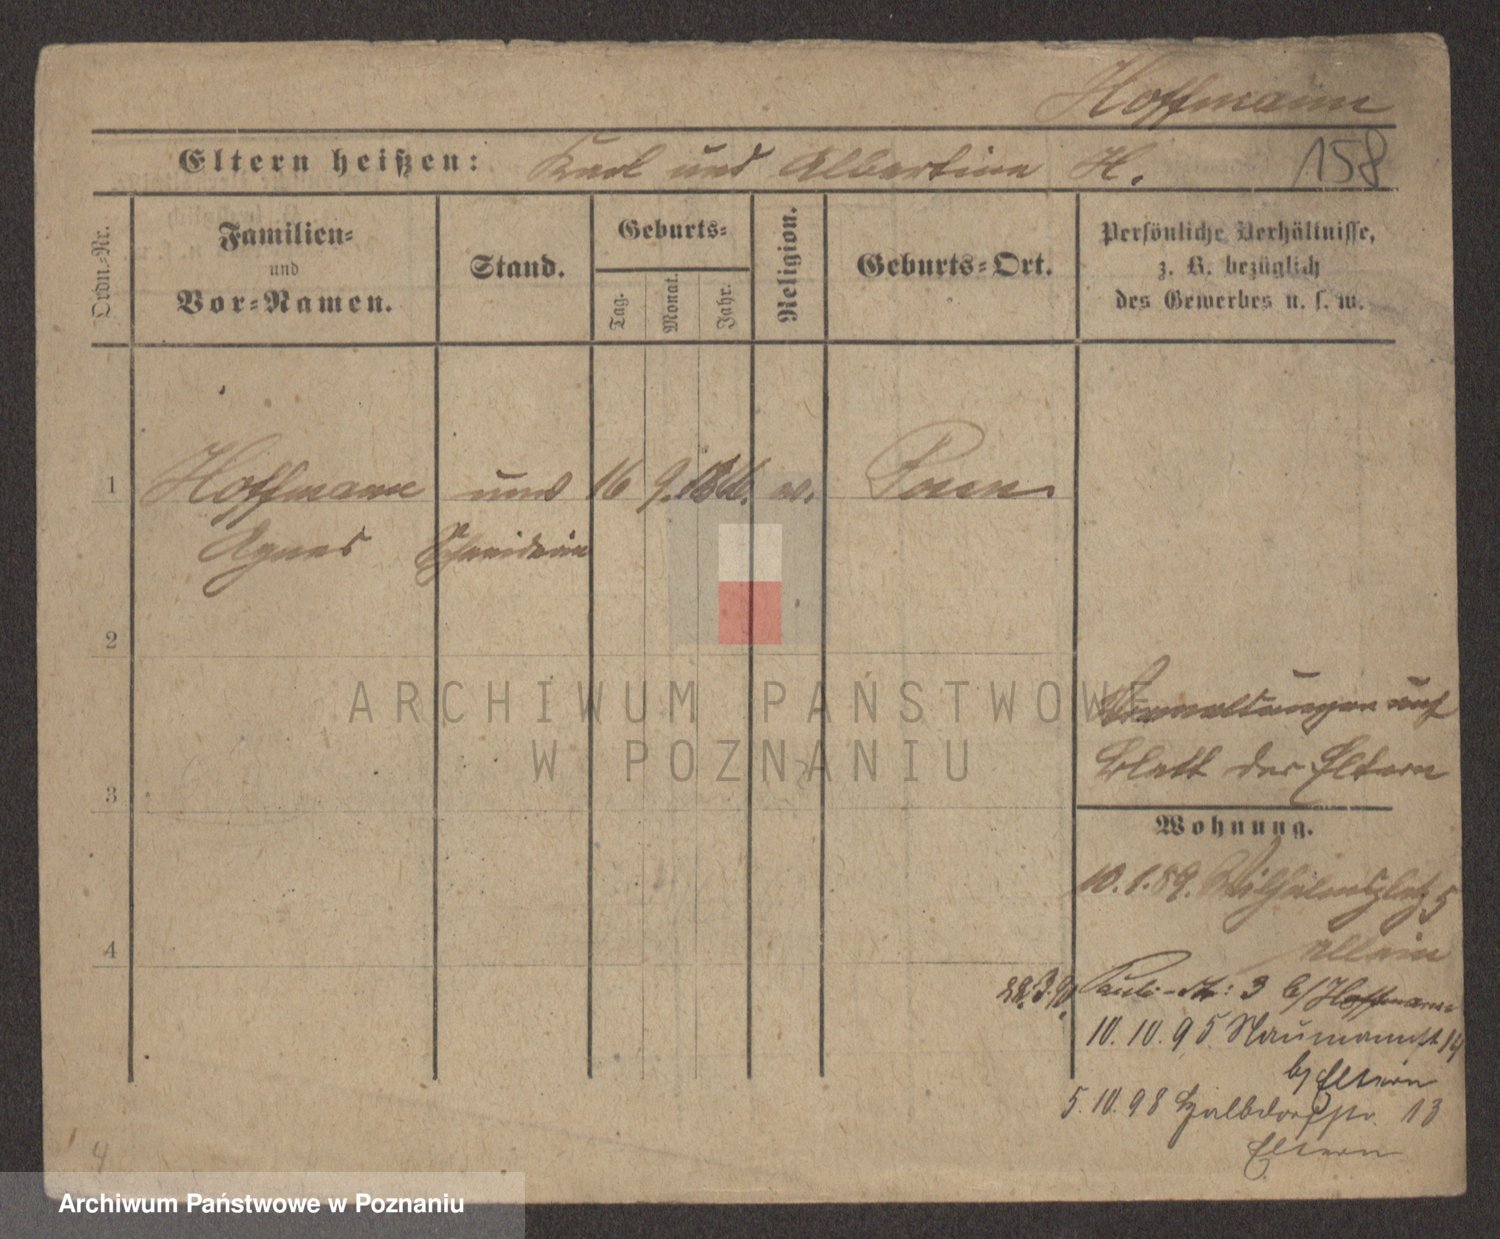 Hoffmann
158
Eltern heißen: Karl und Albertine H.
Ordn.-Nr.
Familien-
und
Vor-Namen.
Stand.
Geburts-
Tag.
Monat.
Jahr.
Religion.
Geburts-Ort.
Persönliche Verhältnisse,
z. B. bezüglich
des Gewerbes u. s. w.
1 Hoffmann 16 9. Posen
Agnes Schneiderin
2
3
4
ARCHIWUM PAŃSTWOWE
W POZNANIU
auf
Blatt der Eltern
Wohnung.
10.1.89. Wilhelmsplatz 5
allein
3 b/ Hoffmann
10.10.95 Naumannstr 14
b/ Eltern
5.10.98 Halbdorfstr. 13
Eltern
4
Archiwum Państwowe w Poznaniu